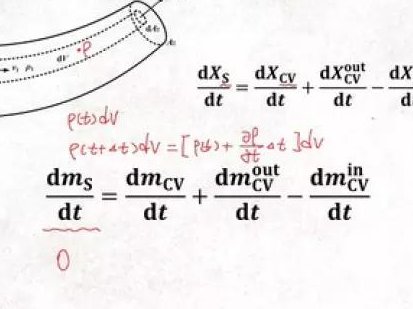 ·P
dV
dX_S/dt = dX_CV/dt + dX_CV^out/dt − dX
ρ(t)dV
ρ(t+Δt)dV = [ρ(t) + ∂ρ/∂t Δt]dV
dm_S/dt = dm_CV/dt + dm_CV^out/dt − dm_CV^in/dt
0